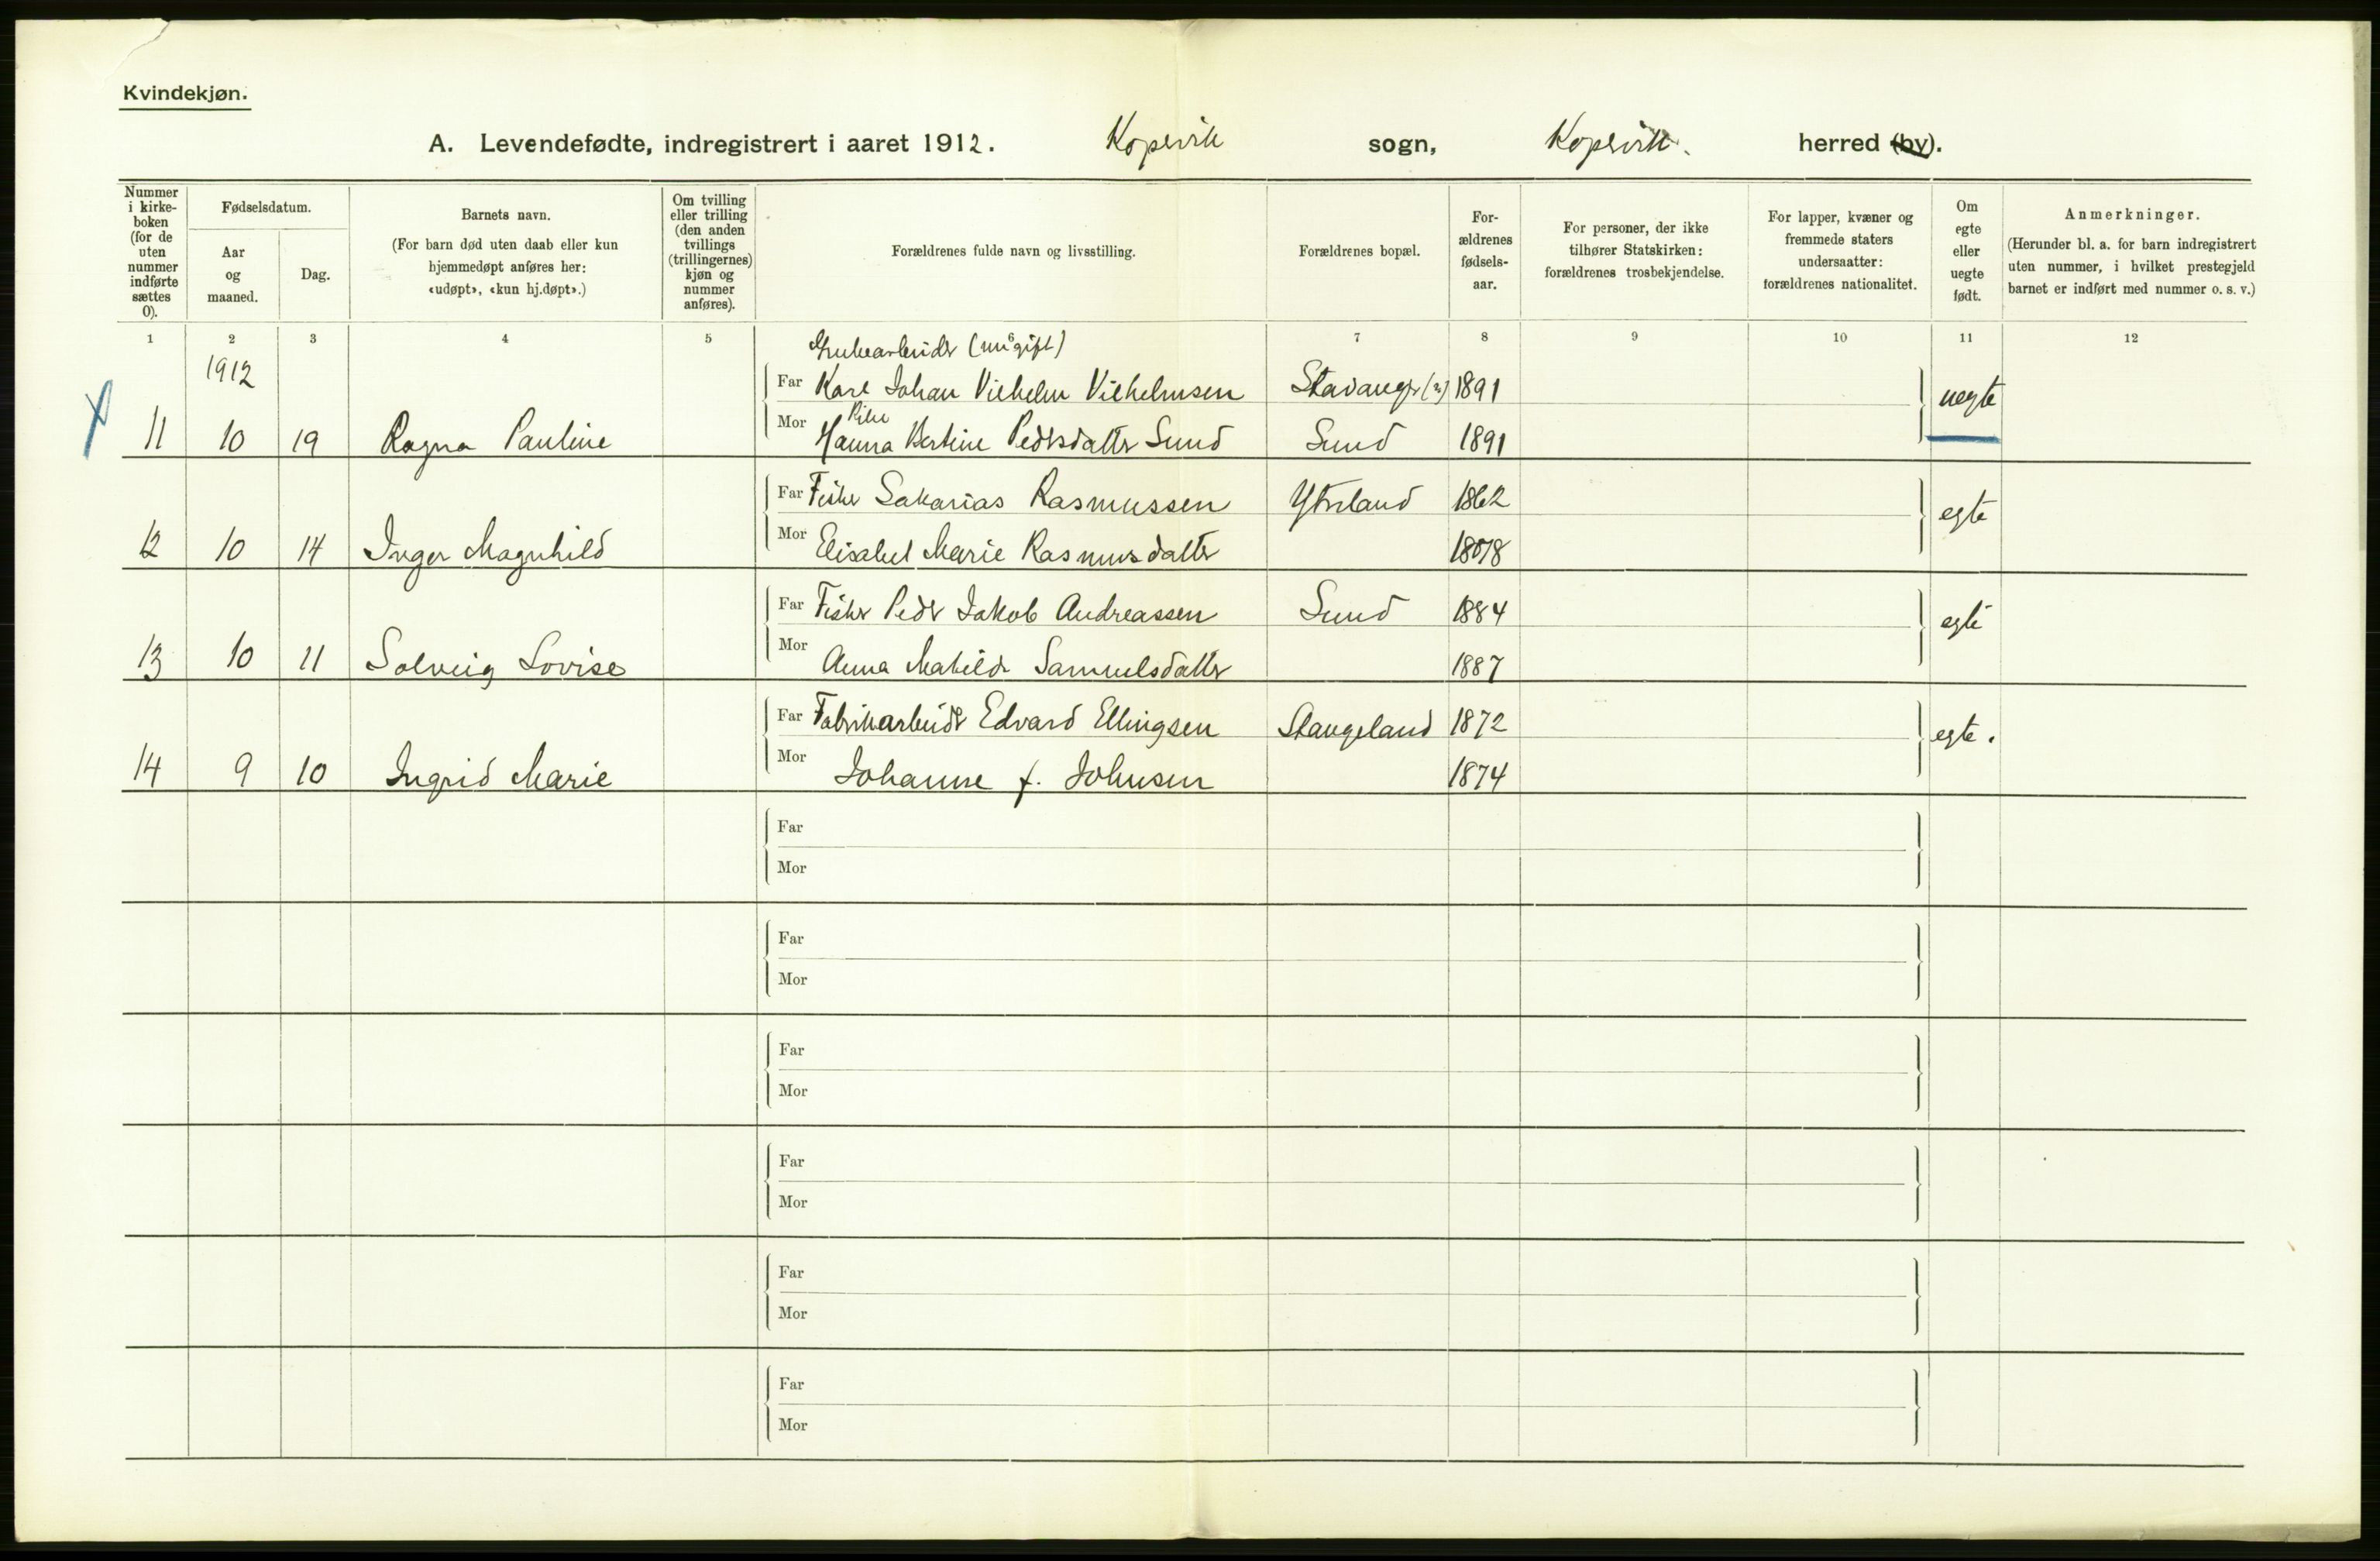 Kvindekjøn.
A. Levendefødte, indregistrert i aaret 1912. Kopervik sogn, Kopervik. herred (by).
Nummer i kirke-boken (for de uten nummer indførte sættes 0).
Fødselsdatum.
Aar og maaned.
Dag.
Barnets navn.
(For barn død uten daab eller kun hjemmedøpt anføres her: «udøpt», «kun hj.døpt».)
Om tvilling eller trilling (den anden tvillings (trillingernes) kjøn og nummer anføres).
Forældrenes fulde navn og livsstilling.
Forældrenes bopæl.
For-ældrenes fødsels-aar.
For personer, der ikke tilhører Statskirken: forældrenes trosbekjendelse.
For lapper, kvæner og fremmede staters undersaatter: forældrenes nationalitet.
Om egte eller uegte født.
Anmerkninger.
(Herunder bl. a. for barn indregistrert uten nummer, i hvilket prestegjeld barnet er indført med nummer o. s. v.)
1 2 3 4 5 6 7 8 9 10 11 12
1912
Grubearbeider (ungift)
Far Karl Johan Vilhelm Vilhelmsen Stavanger (?) 1891 uegte
Pike
11 10 19 Ragna Pauline Mor Hanna Bertine Pedersdatter Sund Sund 1891
Far Fisker Sakarias Rasmussen Ytreland 1862 egte
12 10 14 Inger Magnhild Mor Elisabet Marie Rasmusdatter 1878
Far Fisker Peder Jakob Andreassen Sund 1884 egte
13 10 11 Solveig Lovise Mor Anna Matilde Samuelsdatter 1887
Far Fabrikarbeider Edvard Ellingsen Stangeland 1872 egte.
14 9 10 Ingrid Marie Mor Johanne f. Johnsen 1874
Far
Mor
Far
Mor
Far
Mor
Far
Mor
Far
Mor
Far
Mor